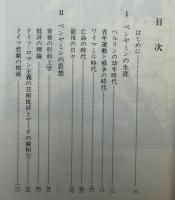 目次
はじめに
I ベンヤミンの生涯
ベルリンの幼年時代
青年運動と戦争の時代
ワイマール時代
亡命の時代
最後の日々
II ベンヤミンの思想
青春の形而上学
批評の理論
ドイツ・ロマン主義の芸術批評とゲーテの親和力
ドイツ悲劇の根源